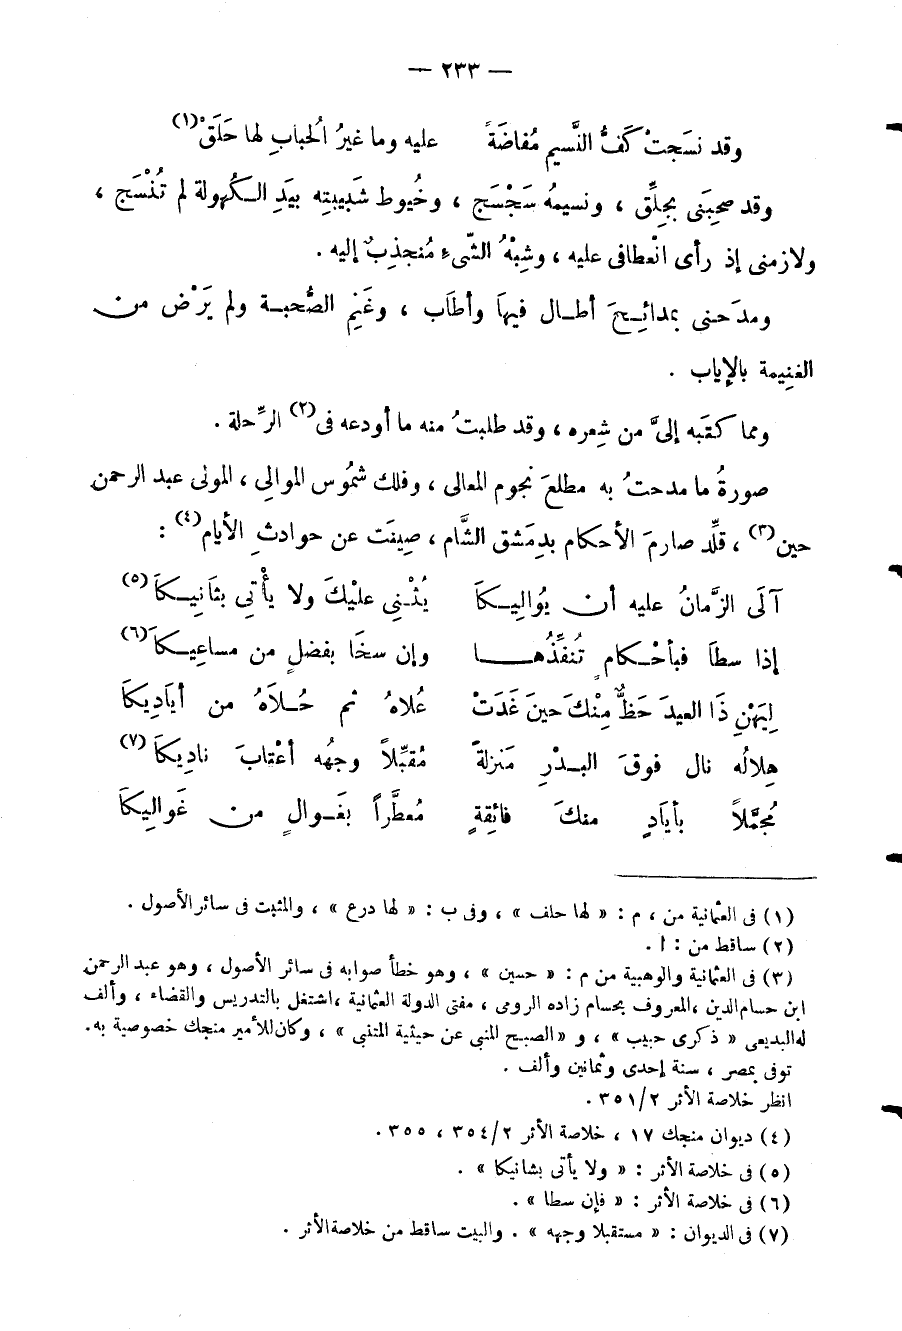 — ٢٣٣ —
وقد نسَجتْ كَفُّ النَّسيم مُفاضَةً عليه وما غيرُ الحُبابِ لها حَلَقْ (١)
وقد صحِبَنى بجِلِّق ، ونسيمُه سَجْسَج ، وخُيوط شَبيبتِه بيَدِ الكُهولة لم تُنْسَج ،
ولازمنى إذ رأى انْعطافى عليه ، وشِبْهُ الشَّىءِ مُنجذِبٌ إليه .
ومدَحنى بمدائِحَ أطال فيها وأطَاب ، وغَنِم الصُّحبة ولم يَرْض من
الغنِيمة بالإياب .
ومما كتَبه إلىَّ من شِعره ، وقد طلبتُ منه ما أودعه فى (٢) الرِّحلة .
صورةُ ما مدحتُ به مطلعَ نجوم المعالى ، وفلك شمُوس الموالِي ، المولى عبد الرحمن
حين (٣) ، قلِّد صارمَ الأحكام بدِمَشق الشَّام ، صِيفَت عن حوادثِ الأيام (٤) :
آلَى الزَّمانُ عليه أن يُوَالِيكَا يُثْنِي عليْكَ ولا يأْتِى بثَانِيكَا (٥)
إذا سطَا فبأحْكامٍ تُنفِّذُها وإن سخَا بفضلٍ من مساعِيكَا (٦)
لِيَهْنِ ذَا العيدَ حَظٌّ مِنْكَ حينَ غَدَتْ عُلاهُ ثم حُلاَهُ من أيَادِيكَا
هِلالُه نال فوقَ البدْرِ مَنزلةً مُقبِّلاً وجهُه أعْتابَ نادِيكَا (٧)
مُجمَّلاً بأيَادٍ منكَ فائِقةٍ مُعطَّراً بغَوالٍ من غَوالِيكَا
(١) فى العثمانية من ، م : « لها حلف » ، وفى ب : « لها درع » ، والمثبت فى سائر الأصول .
(٢) ساقط من : ا .
(٣) فى العثمانية والوهبية من م : « حسين » ، وهو خطأ صوابه فى سائر الأصول ، وهو عبد الرحمن
ابن حسام الدين ، المعروف بحسام زاده الرومى ، مفتى الدولة العثمانية ، اشتغل بالتدريس والقضاء ، وألف
له البديعى « ذكرى حبيب » ، و « الصبح المنبى عن حيثية المتنبى » ، وكان للأمير منجك خصوصية به .
توفى بمصر ، سنة إحدى وثمانين وألف .
انظر خلاصة الأثر ٢/٣٥١ .
(٤) ديوان منجك ١٧ ، خلاصة الأثر ٢/٣٥٤ ، ٣٥٥ .
(٥) فى خلاصة الأثر : « ولا يأتى بشانيكا » .
(٦) فى خلاصة الأثر : « فإن سطا » .
(٧) فى الديوان : « مستقبلا وجهه » . والبيت ساقط من خلاصة الأثر .